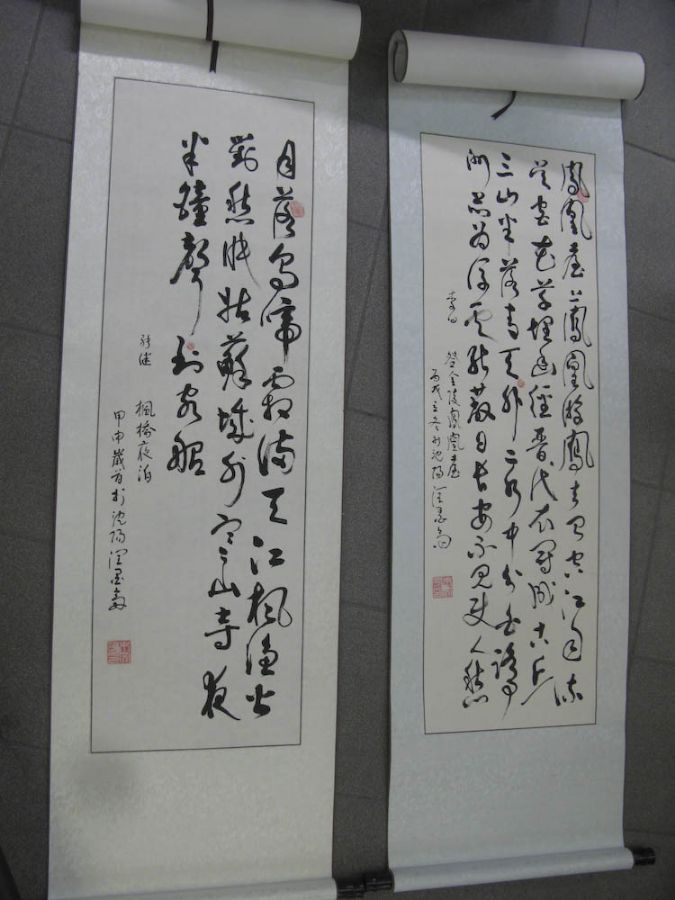 鳳凰臺上鳳凰游鳳去臺空江自流
吳宮花草埋幽徑晋代衣冠成古丘
三山半落青天外二水中分白鷺
洲总为浮雲能蔽日長安不見使人愁
李白
登金陵鳳凰臺
丙戌立冬於沈阳
月落烏啼霜滿天江楓漁火
對愁眠姑蘇城外寒山寺夜
半鐘聲到客船
张继
楓橋夜泊
甲申歲首於沈阳